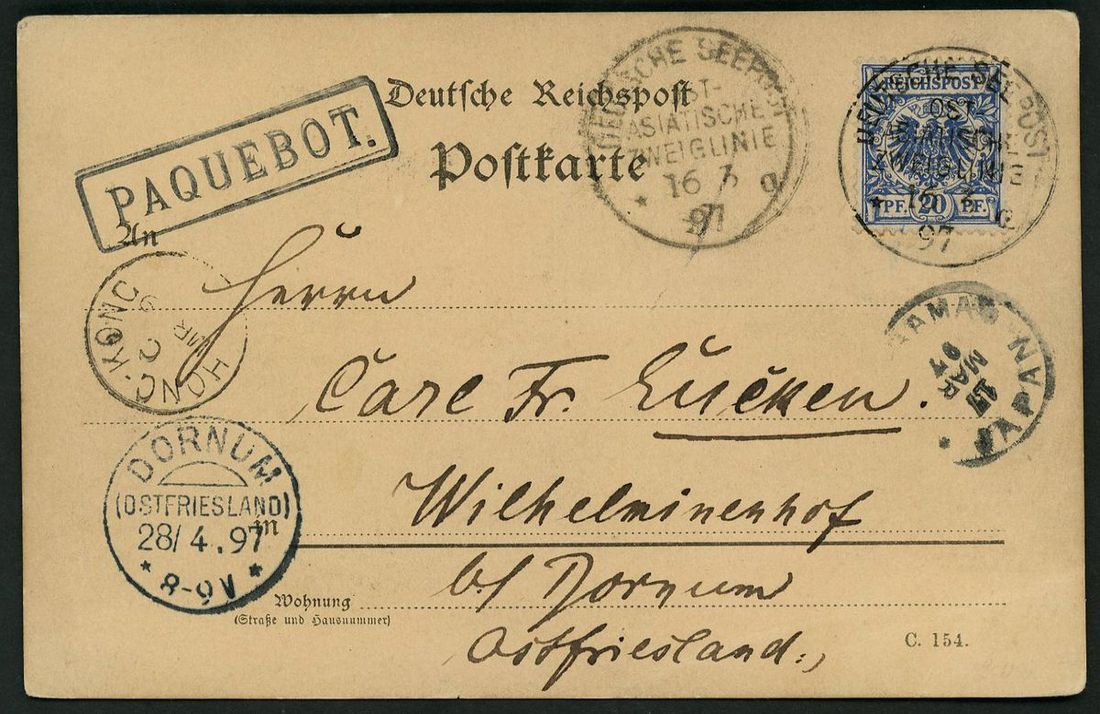 PAQUEBOT.
Deutsche Reichspost
Postkarte
DEUTSCHE SEEPOST
OST-
ASIATISCHE
ZWEIGLINIE
16 3
97
a
REICHSPOST
PF. 20 PF.
DEUTSCHE SEEPOST
OST-
ASIATISCHE
ZWEIGLINIE
16 3
97
a
An
Herrn
HONG-KONG
MR
Carl Fr. Eucken.
JAPAN
17
MAR
97
DORNUM
(OSTFRIESLAND)
28/4.97
* 8-9V *
Wilhelminenhof
in
b/ Dornum
Wohnung
(Straße und Hausnummer)
Ostfriesland.,
C. 154.